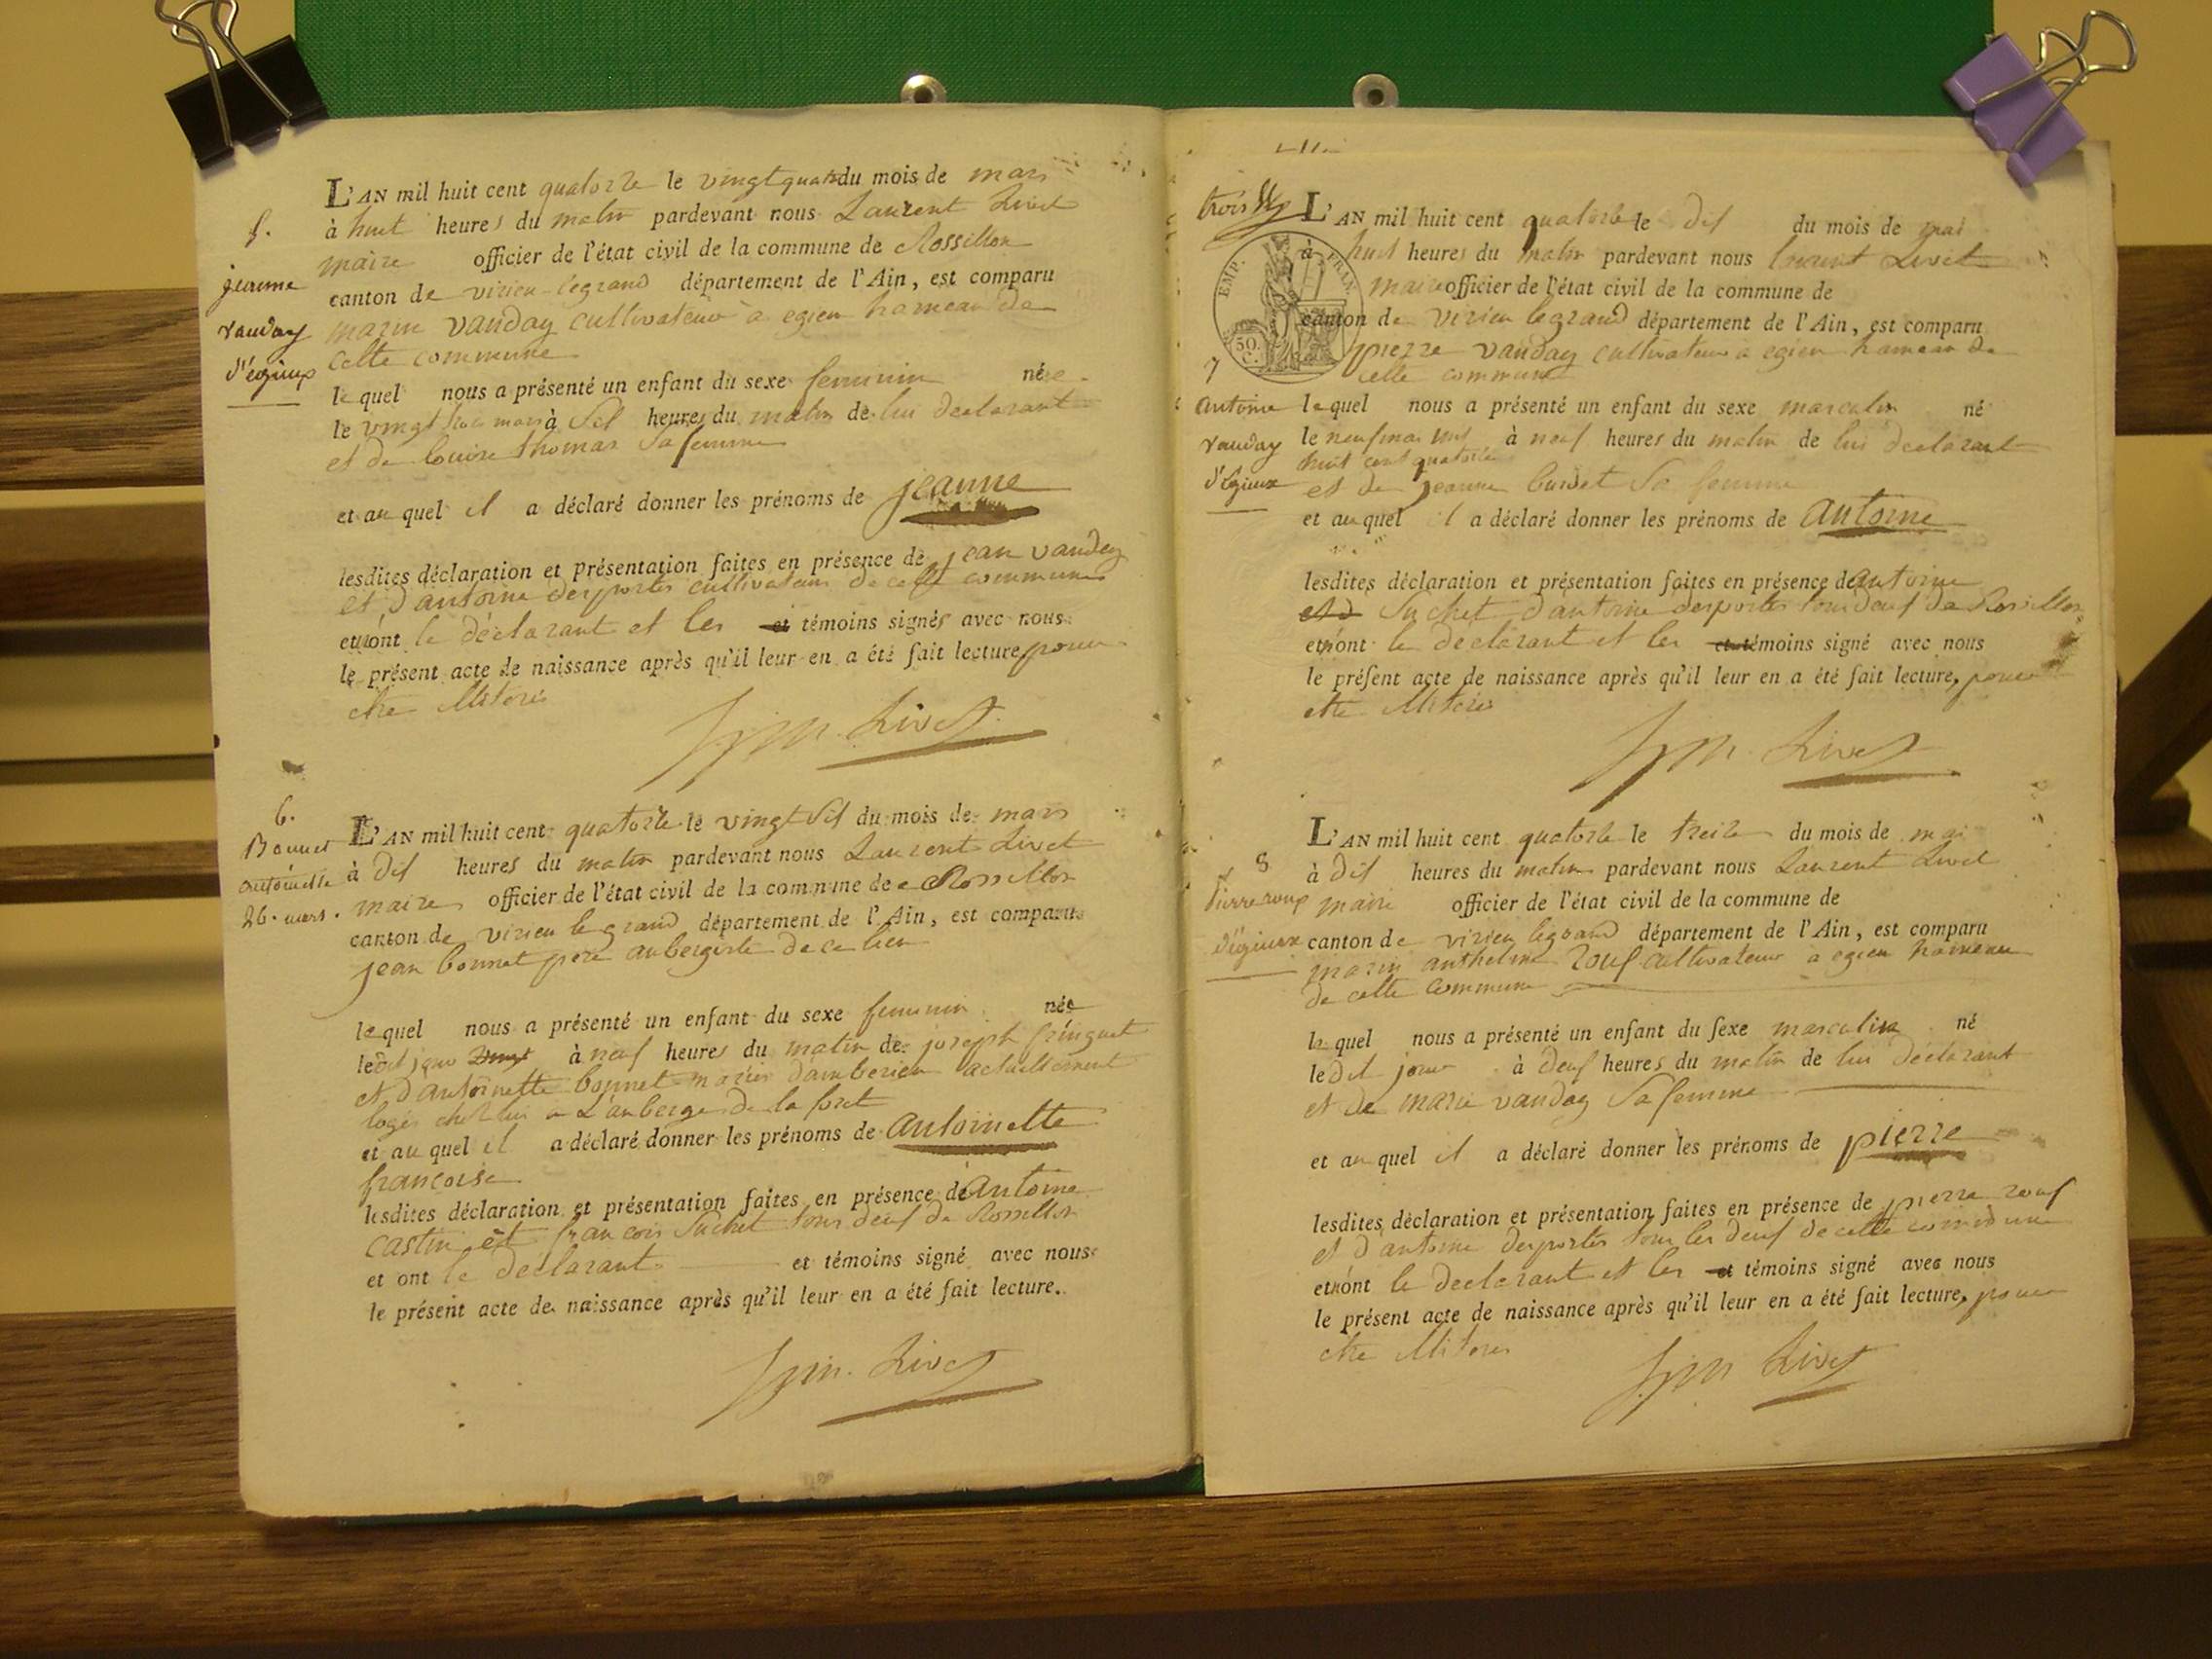 5.
jeanne
vanday
d'égieux
L'AN mil huit cent quatorze le vingt quatre du mois de mars
à huit heures du matin pardevant nous Laurent Livet
maire officier de l'état civil de la commune de Rossillon
canton de virieu legrand département de l'Ain, est comparu
marin vanday cultivateur à egieu hameau de
cette commune
lequel nous a présenté un enfant du sexe feminin née
le vingt trois mars à six heures du matin de lui declarant
et de louise thomas sa femme
et au quel il a déclaré donner les prénoms de jeanne
lesdites déclaration et présentation faites en présence de jean vanday
et d'antoine desportes cultivateurs de cette commune
et n'ont le déclarant et les et témoins signés avec nous
le présent acte de naissance après qu'il leur en a été fait lecture, pour
etre illiterés
Livet
6.
Bonnet
antoinette
26. mars.
L'AN mil huit cent quatorze le vingt six du mois de mars
à dix heures du matin pardevant nous Laurent Livet
maire officier de l'état civil de la commune de Rossillon
canton de virieu le grand département de l'Ain, est comparu
jean bonnet pere aubergiste de ce lieu
lequel nous a présenté un enfant du sexe feminin née
le dit jour vingt à neuf heures du matin de joseph
et d'antoinette bonnet mariés d'amberieu actuellement
logés chez lui a L'auberge de la foret
et au quel il a déclaré donner les prénoms de antoinette
francoise
lesdites déclaration et présentation faites en présence de antoine
castin et francois Suchet tous deux de Rossillon
et ont le déclarant et témoins signé avec nous
le présent acte de naissance après qu'il leur en a été fait lecture.
Livet
trois
EMP. FRAN.
50.
C.
7
antoine
vanday
d'égieux
L'AN mil huit cent quatorze le dix du mois de mai
à huit heures du matin pardevant nous laurent Livet
maire officier de l'état civil de la commune de
canton de virieu legrand département de l'Ain, est comparu
pierre vanday cultivateur a egieu hameau de
cette commune
lequel nous a présenté un enfant du sexe masculin né
le neuf mai mil à neuf heures du matin de lui declarant
huit cent quatorze
et de jeanne sa femme
et au quel il a déclaré donner les prénoms de antoine
lesdites déclaration et présentation faites en présence de antoine
et d Suchet d'antoine desportes tous deux de Rossillon
et n'ont le declarant et les et témoins signé avec nous
le présent acte de naissance après qu'il leur en a été fait lecture, pour
etre illiterés
Livet
8
Pierre roux
d'égieux
L'AN mil huit cent quatorze le treize du mois de mai
à dix heures du matin pardevant nous Laurent Livet
maire officier de l'état civil de la commune de
canton de virieu legrand département de l'Ain, est comparu
marin anthelme roux cultivateur a egieu hameau
de cette commune
lequel nous a présenté un enfant du sexe masculin né
le dit jour à deux heures du matin de lui déclarant
et de marie vanday sa femme
et au quel il a déclaré donner les prénoms de pierre
lesdites déclaration et présentation faites en présence de pierre roux
et d'antoine desportes tous les deux de cette commune
et n'ont le declarant et les et témoins signé avec nous
le présent acte de naissance après qu'il leur en a été fait lecture, pour
etre illiterés
Livet